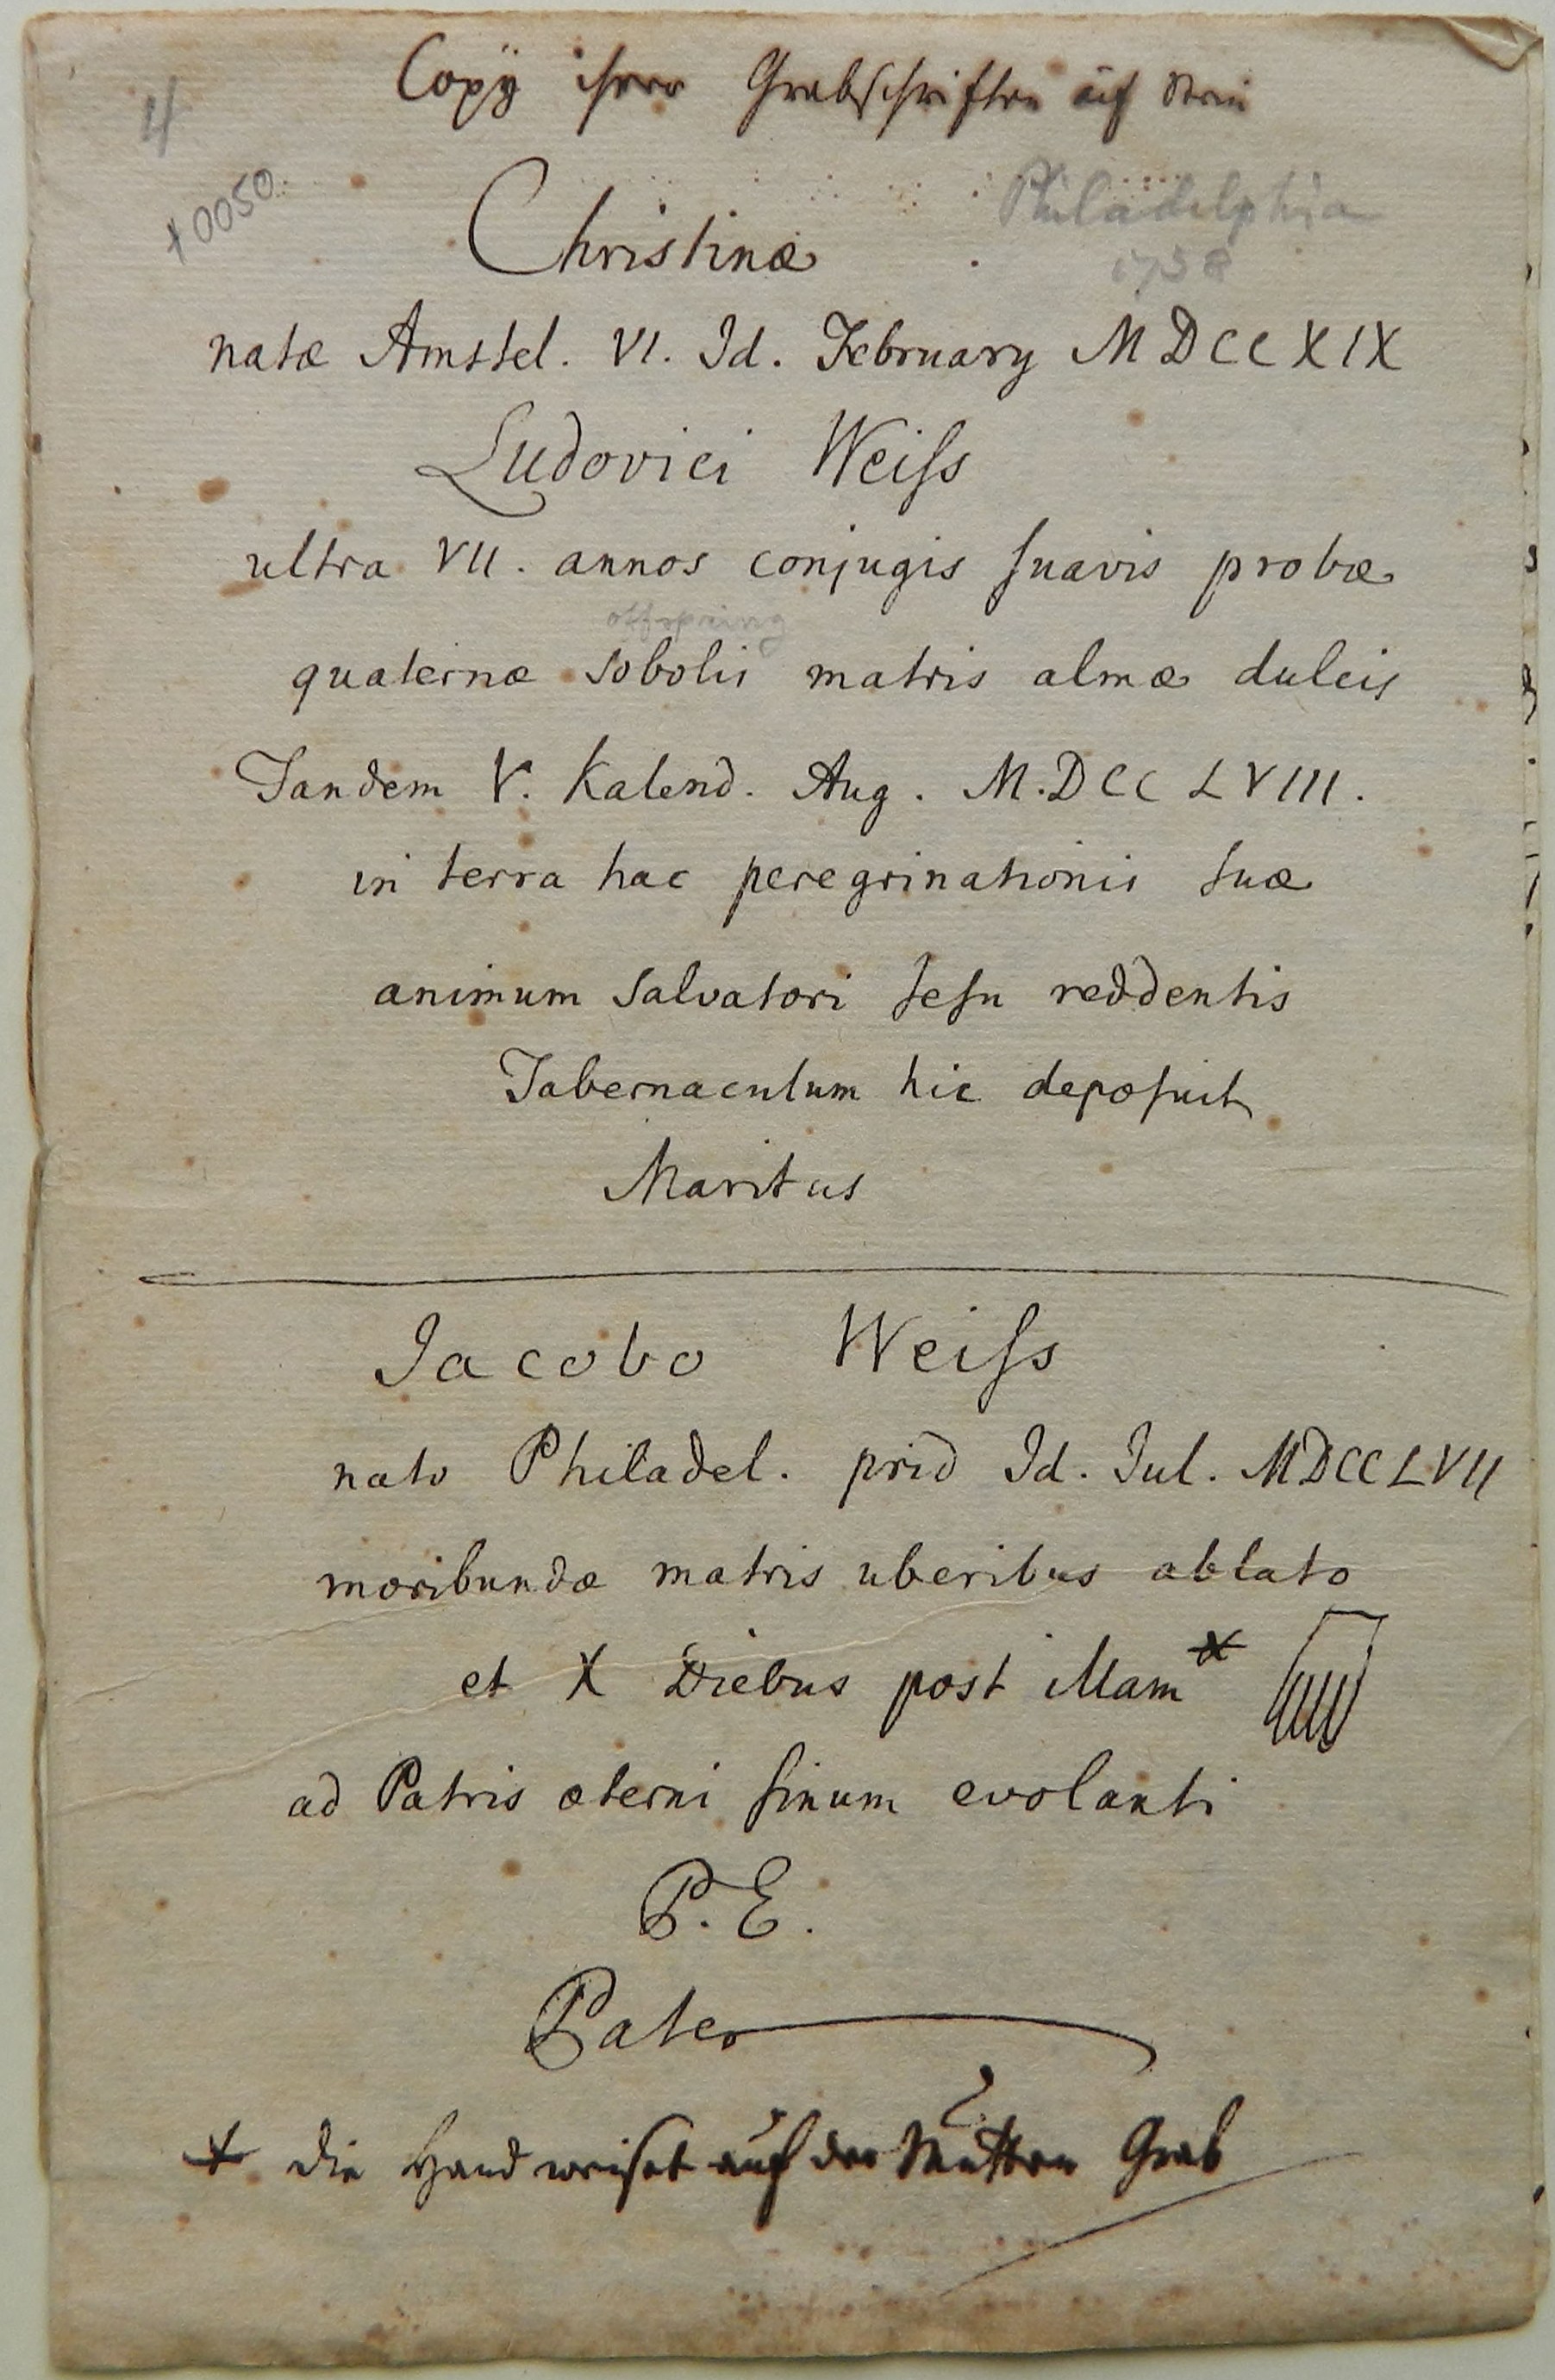 4
+0050
Copÿ ihrer Grabschriften auf Stein
Philadelphia
1758
Christinæ
natæ Amstel. VI. Id. February MDCCXIX
Ludovici Weiſs
ultra VII. annos conjugis ſuavis probæ
offspring
quaternæ sobolis matris almæ dulcis
Tandem V. Kalend. Aug. M.DCCLVIII.
in terra hac peregrinationis ſuæ
animum salvatori Jeſu reddentis
Tabernaculum hic depoſuit
Maritus
Jacobo Weiſs
nato Philadel. prid Id. Jul. MDCCLVII
moribundæ matris uberibus ablato
et X Diebus post illam *
ad Patris æterni ſinum evolanti
P. E.
Pater
* die Hand weiſet auf der Mutter Grab